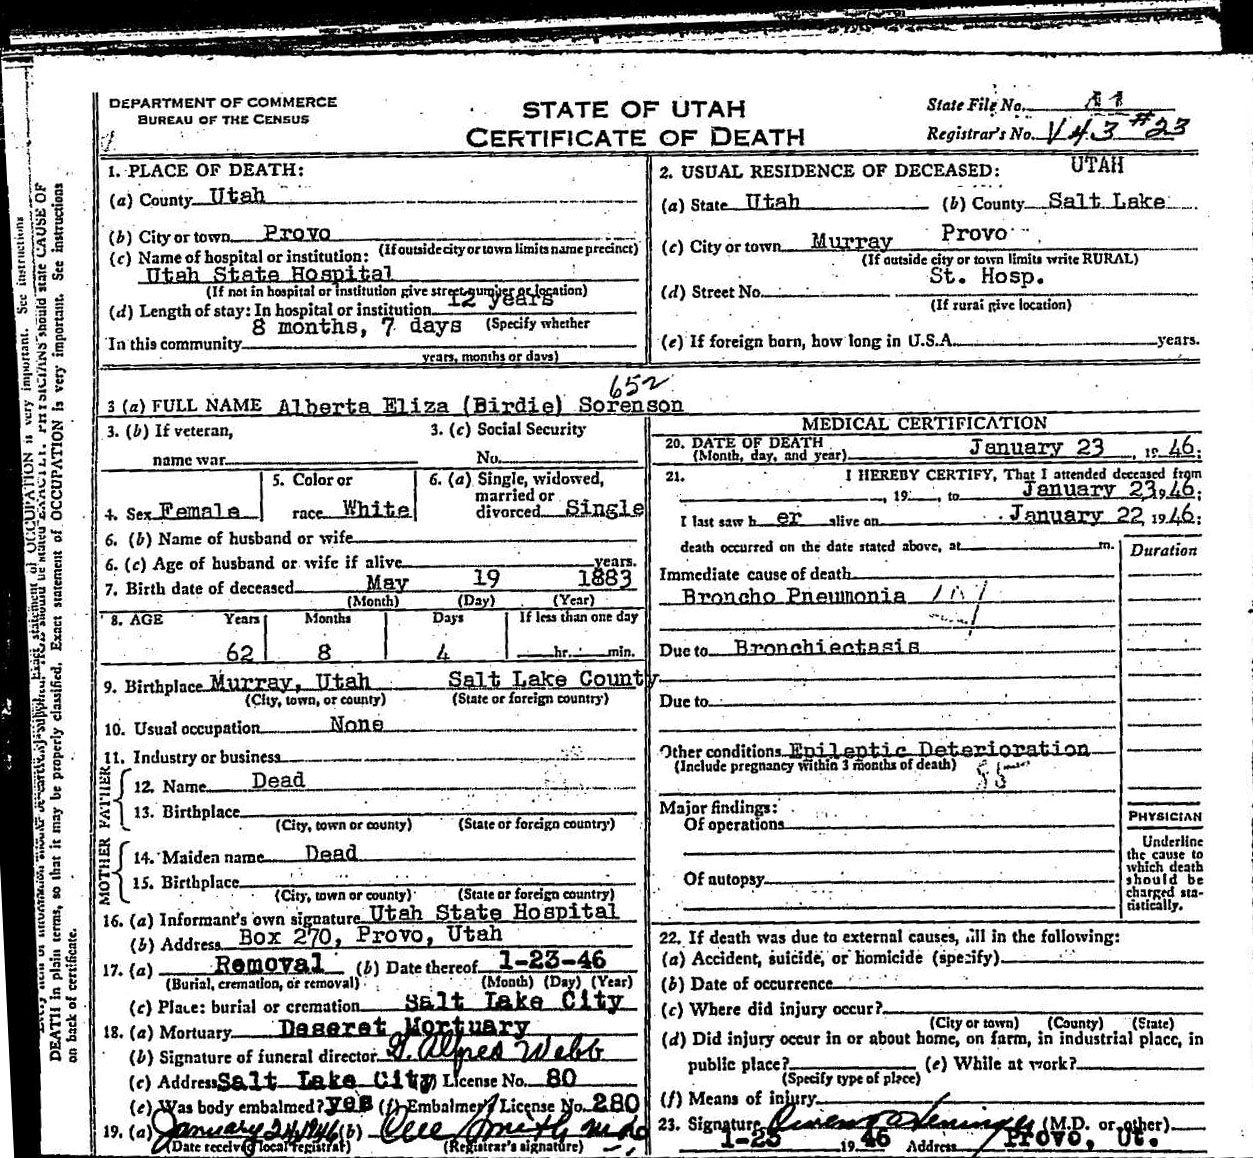 DEPARTMENT OF COMMERCE
BUREAU OF THE CENSUS
STATE OF UTAH
CERTIFICATE OF DEATH
State File No.
Registrar's No. 143 #23
1. PLACE OF DEATH:
(a) County Utah
(b) City or town Provo
(If outside city or town limits name precinct)
(c) Name of hospital or institution:
Utah State Hospital
(If not in hospital or institution give street number or location)
(d) Length of stay: In hospital or institution 12 years
8 months, 7 days (Specify whether
In this community
years, months or days)
2. USUAL RESIDENCE OF DECEASED: UTAH
(a) State Utah (b) County Salt Lake
(c) City or town Murray Provo
(If outside city or town limits write RURAL)
St. Hosp.
(d) Street No.
(If rural give location)
(e) If foreign born, how long in U.S.A. years.
652
3 (a) FULL NAME Alberta Eliza (Birdie) Sorenson
3. (b) If veteran,
name war
3. (c) Social Security
No.
4. Sex Female
5. Color or
race White
6. (a) Single, widowed,
married or
divorced Single
6. (b) Name of husband or wife
6. (c) Age of husband or wife if alive years.
7. Birth date of deceased May 19 1883
(Month) (Day) (Year)
8. AGE Years Months Days If less than one day
62 8 4 hr. min.
9. Birthplace Murray, Utah Salt Lake County
(City, town, or county) (State or foreign country)
10. Usual occupation None
11. Industry or business
FATHER
12. Name Dead
13. Birthplace
(City, town or county) (State or foreign country)
MOTHER
14. Maiden name Dead
15. Birthplace
(City, town or county) (State or foreign country)
16. (a) Informant's own signature Utah State Hospital
(b) Address Box 270, Provo, Utah
17. (a) Removal (b) Date thereof 1-23-46
(Burial, cremation, or removal) (Month) (Day) (Year)
(c) Place: burial or cremation Salt Lake City
18. (a) Mortuary Deseret Mortuary
(b) Signature of funeral director G. Alfred Webb
(c) Address Salt Lake City License No. 80
(e) Was body embalmed? yes (f) Embalmer License No. 280
19. (a) January 24 1946 (b)
(Date received local registrar) (Registrar's signature)
MEDICAL CERTIFICATION
20. DATE OF DEATH
(Month, day, and year) January 23, 1946;
21. I HEREBY CERTIFY, That I attended deceased from
, 19 , to January 23, 46;
I last saw h er alive on January 22, 1946;
death occurred on the date stated above, at m.
Duration
Immediate cause of death
Broncho Pneumonia
Due to Bronchiectasis
Due to
Other conditions Epileptic Deterioration
(Include pregnancy within 3 months of death)
Major findings:
Of operations
Of autopsy
PHYSICIAN
Underline
the cause to
which death
should be
charged sta-
tistically.
22. If death was due to external causes, fill in the following:
(a) Accident, suicide, or homicide (specify)
(b) Date of occurrence
(c) Where did injury occur?
(City or town) (County) (State)
(d) Did injury occur in or about home, on farm, in industrial place, in
public place? (e) While at work?
(Specify type of place)
(f) Means of injury
23. Signature (M.D. or other)
1-23 1946 Address Provo, Ut.
DEATH in plain terms, so that it may be properly classified. Exact statement of OCCUPATION is very important. See instructions
on back of certificate.